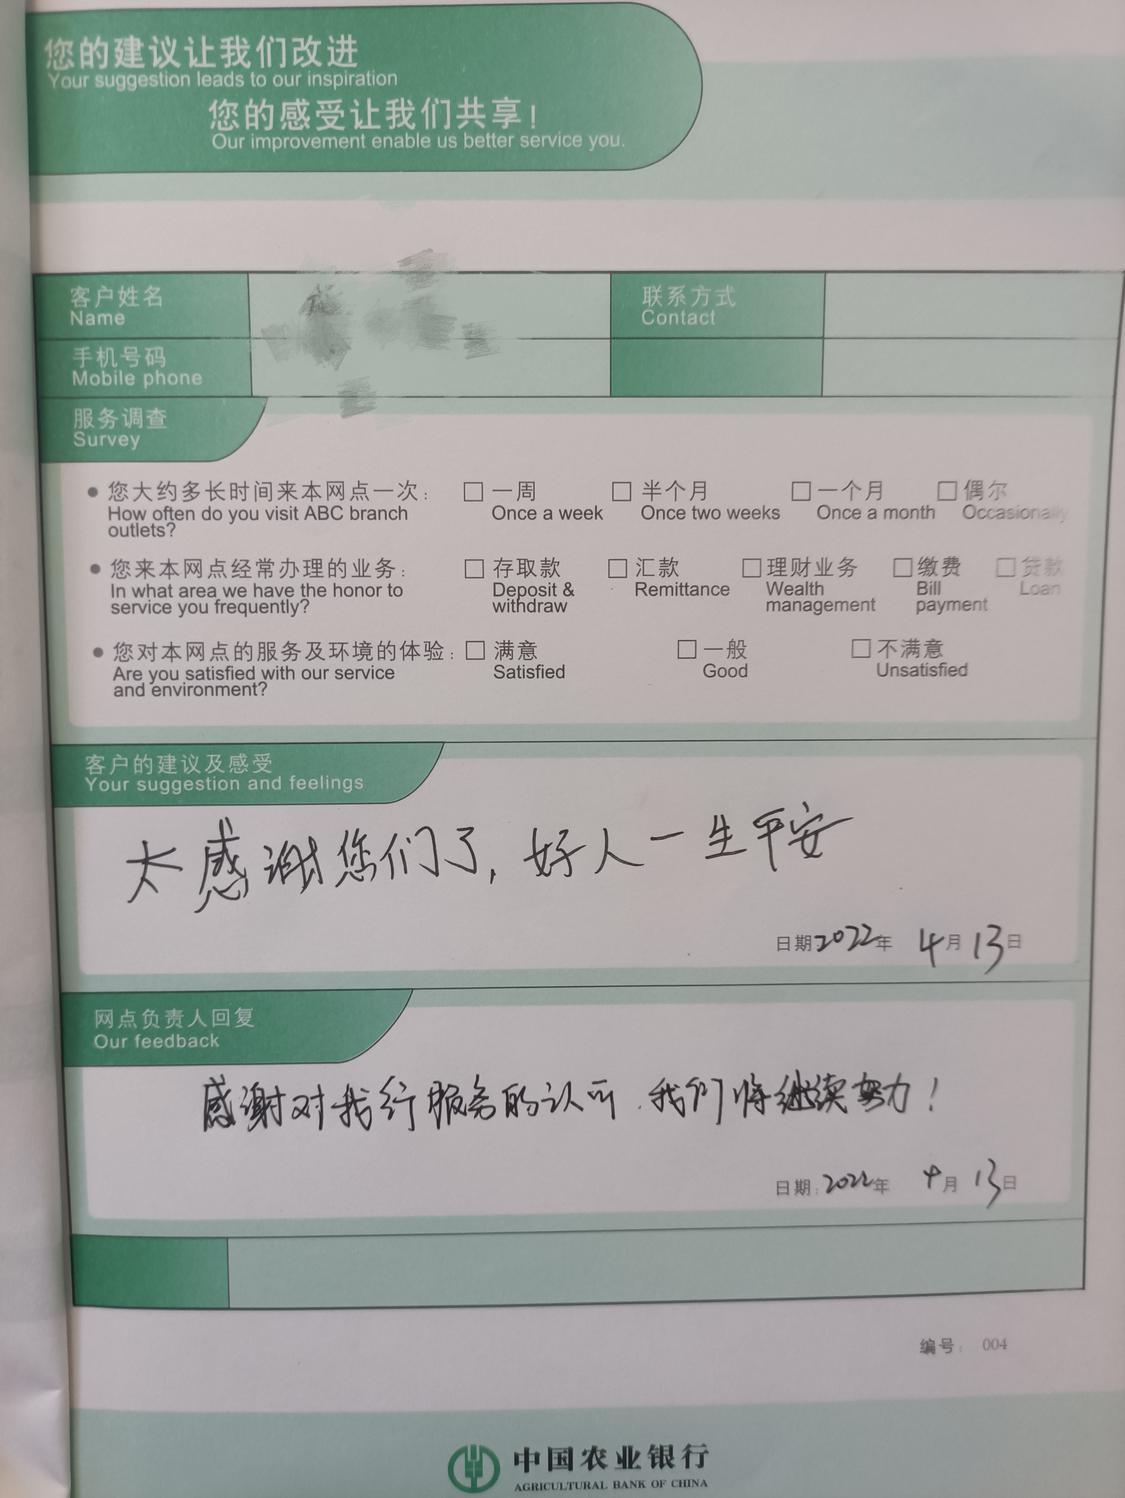 您的建议让我们改进
Your suggestion leads to our inspiration
您的感受让我们共享！
Our improvement enable us better service you.
客户姓名
Name
联系方式
Contact
手机号码
Mobile phone
服务调查
Survey
● 您大约多长时间来本网点一次： □ 一周 □ 半个月 □ 一个月 □ 偶尔
How often do you visit ABC branch Once a week Once two weeks Once a month Occasionally
outlets?
● 您来本网点经常办理的业务： □ 存取款 □ 汇款 □ 理财业务 □ 缴费 □ 贷款
In what area we have the honor to Deposit & Remittance Wealth Bill Loan
service you frequently? withdraw management payment
● 您对本网点的服务及环境的体验： □ 满意 □ 一般 □ 不满意
Are you satisfied with our service Satisfied Good Unsatisfied
and environment?
客户的建议及感受
Your suggestion and feelings
太感谢您们了，好人一生平安
日期2022年 4月13日
网点负责人回复
Our feedback
感谢对我行服务的认可，我们将继续努力！
日期：2022年 4月13日
编号： 004
中国农业银行
AGRICULTURAL BANK OF CHINA